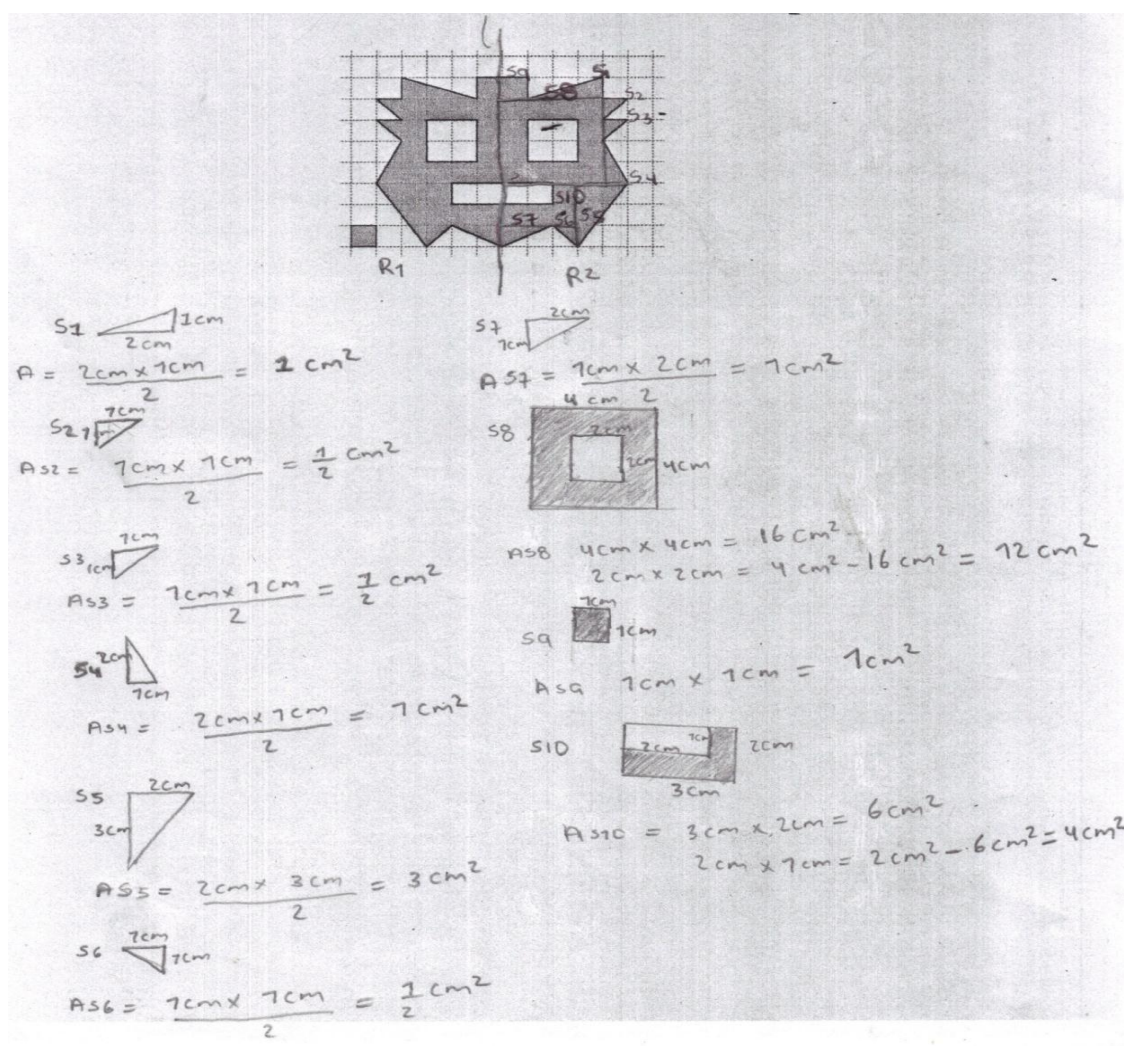 S9 S1
S8 S2
S3
S4
S10
S7 S6 S5
R1 R2
S1 1cm
2cm
A = 2cm x 1cm / 2 = 1 cm²
1cm
S2 1cm
AS2 = 1cm x 1cm / 2 = 1/2 cm²
1cm
S3 1cm
AS3 = 1cm x 1cm / 2 = 1/2 cm²
S4 2cm
1cm
AS4 = 2cm x 1cm / 2 = 1cm²
S5 2cm
3cm
AS5 = 2cm x 3cm / 2 = 3cm²
1cm
S6 1cm
AS6 = 1cm x 1cm / 2 = 1/2 cm²
S7 2cm
1cm
AS7 = 1cm x 2cm / 2 = 1cm²
4 cm
S8 2cm
2cm 4cm
AS8 4cm x 4cm = 16 cm²
2cm x 2cm = 4 cm² - 16 cm² = 12 cm²
1cm
S9 1cm
AS9 1cm x 1cm = 1cm²
S10 2cm 1cm 2cm
3cm
AS10 = 3cm x 2cm = 6cm²
2cm x 1cm = 2cm² - 6cm² = 4cm²